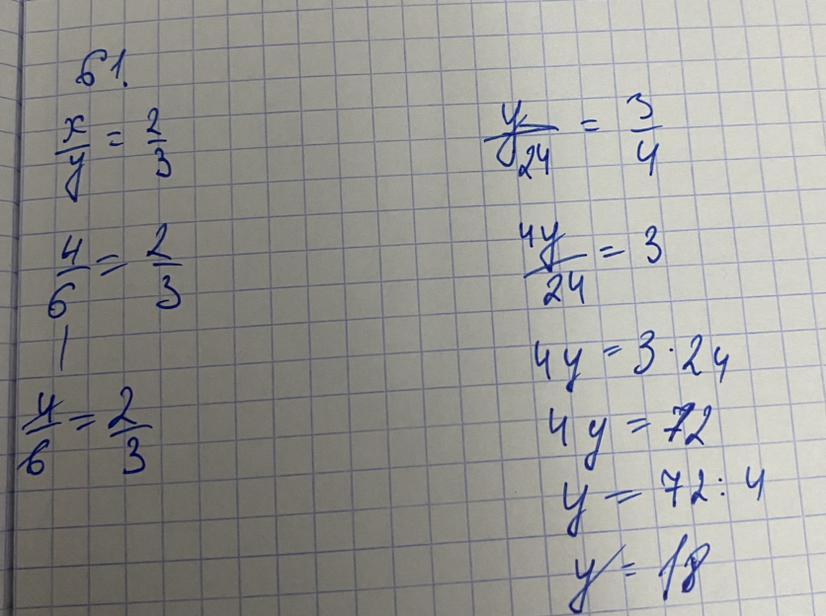 61.
x/y = 2/3
4/6 = 2/3
4/6 = 2/3
y/24 = 3/4
4y/24 = 3
4y = 3·24
4y = 72
y = 72:4
y = 18